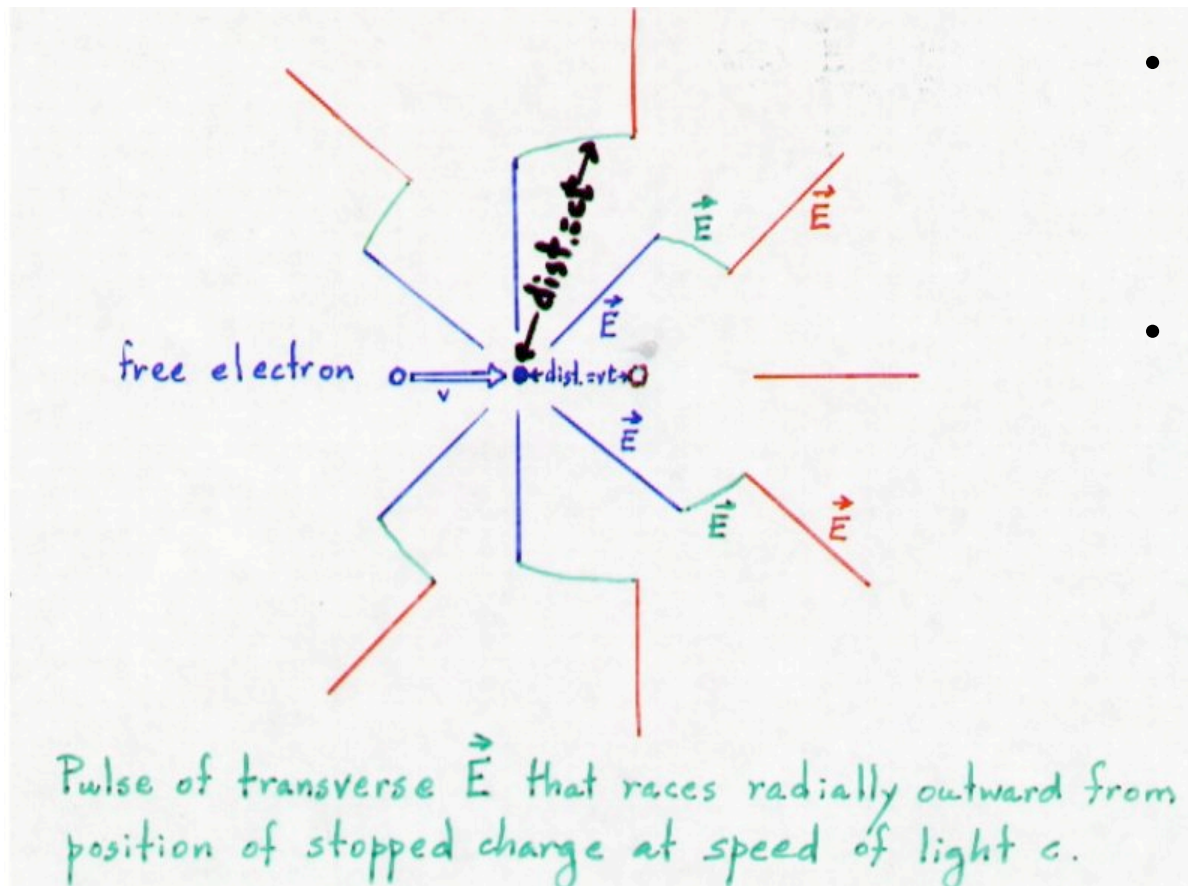 dist.=ct
E⃗
E⃗
E⃗
free electron
v
dist.=vt
E⃗
E⃗
E⃗
Pulse of transverse E⃗ that races radially outward from
position of stopped charge at speed of light c.